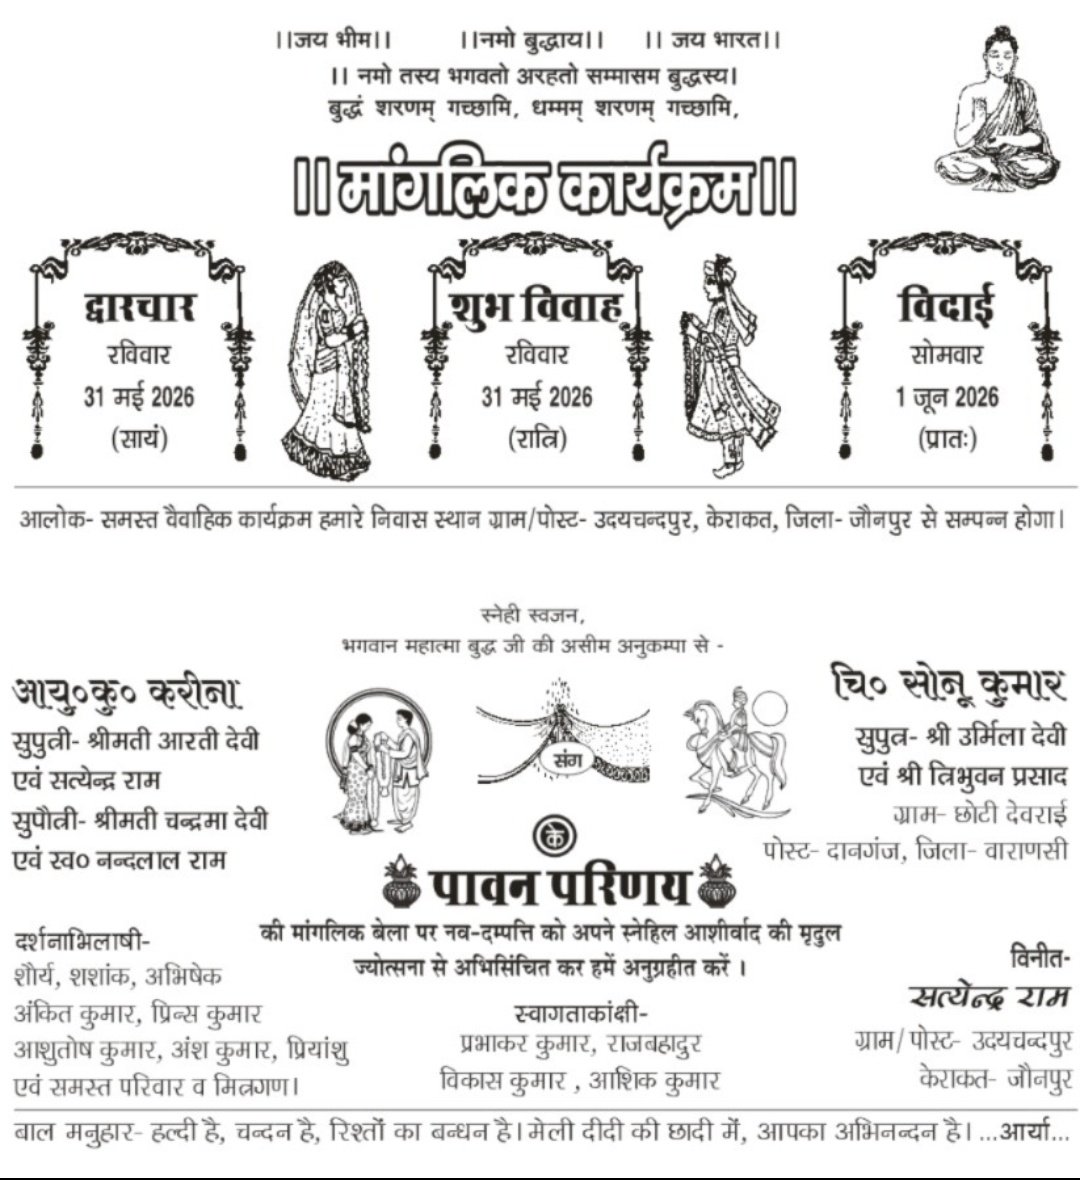 ।।जय भीम।। ।।नमो बुद्धाय।। ।। जय भारत।।
।। नमो तस्य भगवतो अरहतो सम्मासम बुद्धस्य।
बुद्धं शरणम् गच्छामि, धम्मम् शरणम् गच्छामि,
।।मांगलिक कार्यक्रम।।
द्वारचार
रविवार
31 मई 2026
(सायं)
शुभ विवाह
रविवार
31 मई 2026
(रात्रि)
विदाई
सोमवार
1 जून 2026
(प्रातः)
आलोक- समस्त वैवाहिक कार्यक्रम हमारे निवास स्थान ग्राम/पोस्ट- उदयचन्दपुर, केराकत, जिला- जौनपुर से सम्पन्न होगा।
स्नेही स्वजन,
भगवान महात्मा बुद्ध जी की असीम अनुकम्पा से -
आयु०कु० करीना
सुपुत्री- श्रीमती आरती देवी
एवं सत्येन्द्र राम
सुपौत्री- श्रीमती चन्द्रमा देवी
एवं स्व० नन्दलाल राम
संग
चि० सोनू कुमार
सुपुत्र- श्री उर्मिला देवी
एवं श्री त्रिभुवन प्रसाद
ग्राम- छोटी देवराई
पोस्ट- दानगंज, जिला- वाराणसी
के
पावन परिणय
की मांगलिक बेला पर नव-दम्पत्ति को अपने स्नेहिल आशीर्वाद की मृदुल
ज्योत्सना से अभिसिंचित कर हमें अनुग्रहीत करें ।
दर्शनाभिलाषी-
शौर्य, शशांक, अभिषेक
अंकित कुमार, प्रिन्स कुमार
आशुतोष कुमार, अंश कुमार, प्रियांशु
एवं समस्त परिवार व मित्रगण।
स्वागताकांक्षी-
प्रभाकर कुमार, राजबहादुर
विकास कुमार , आशिक कुमार
विनीत-
सत्येन्द्र राम
ग्राम/पोस्ट- उदयचन्दपुर
केराकत- जौनपुर
बाल मनुहार- हल्दी है, चन्दन है, रिश्तों का बन्धन है। मेली दीदी की छादी में, आपका अभिनन्दन है। ...आर्या...